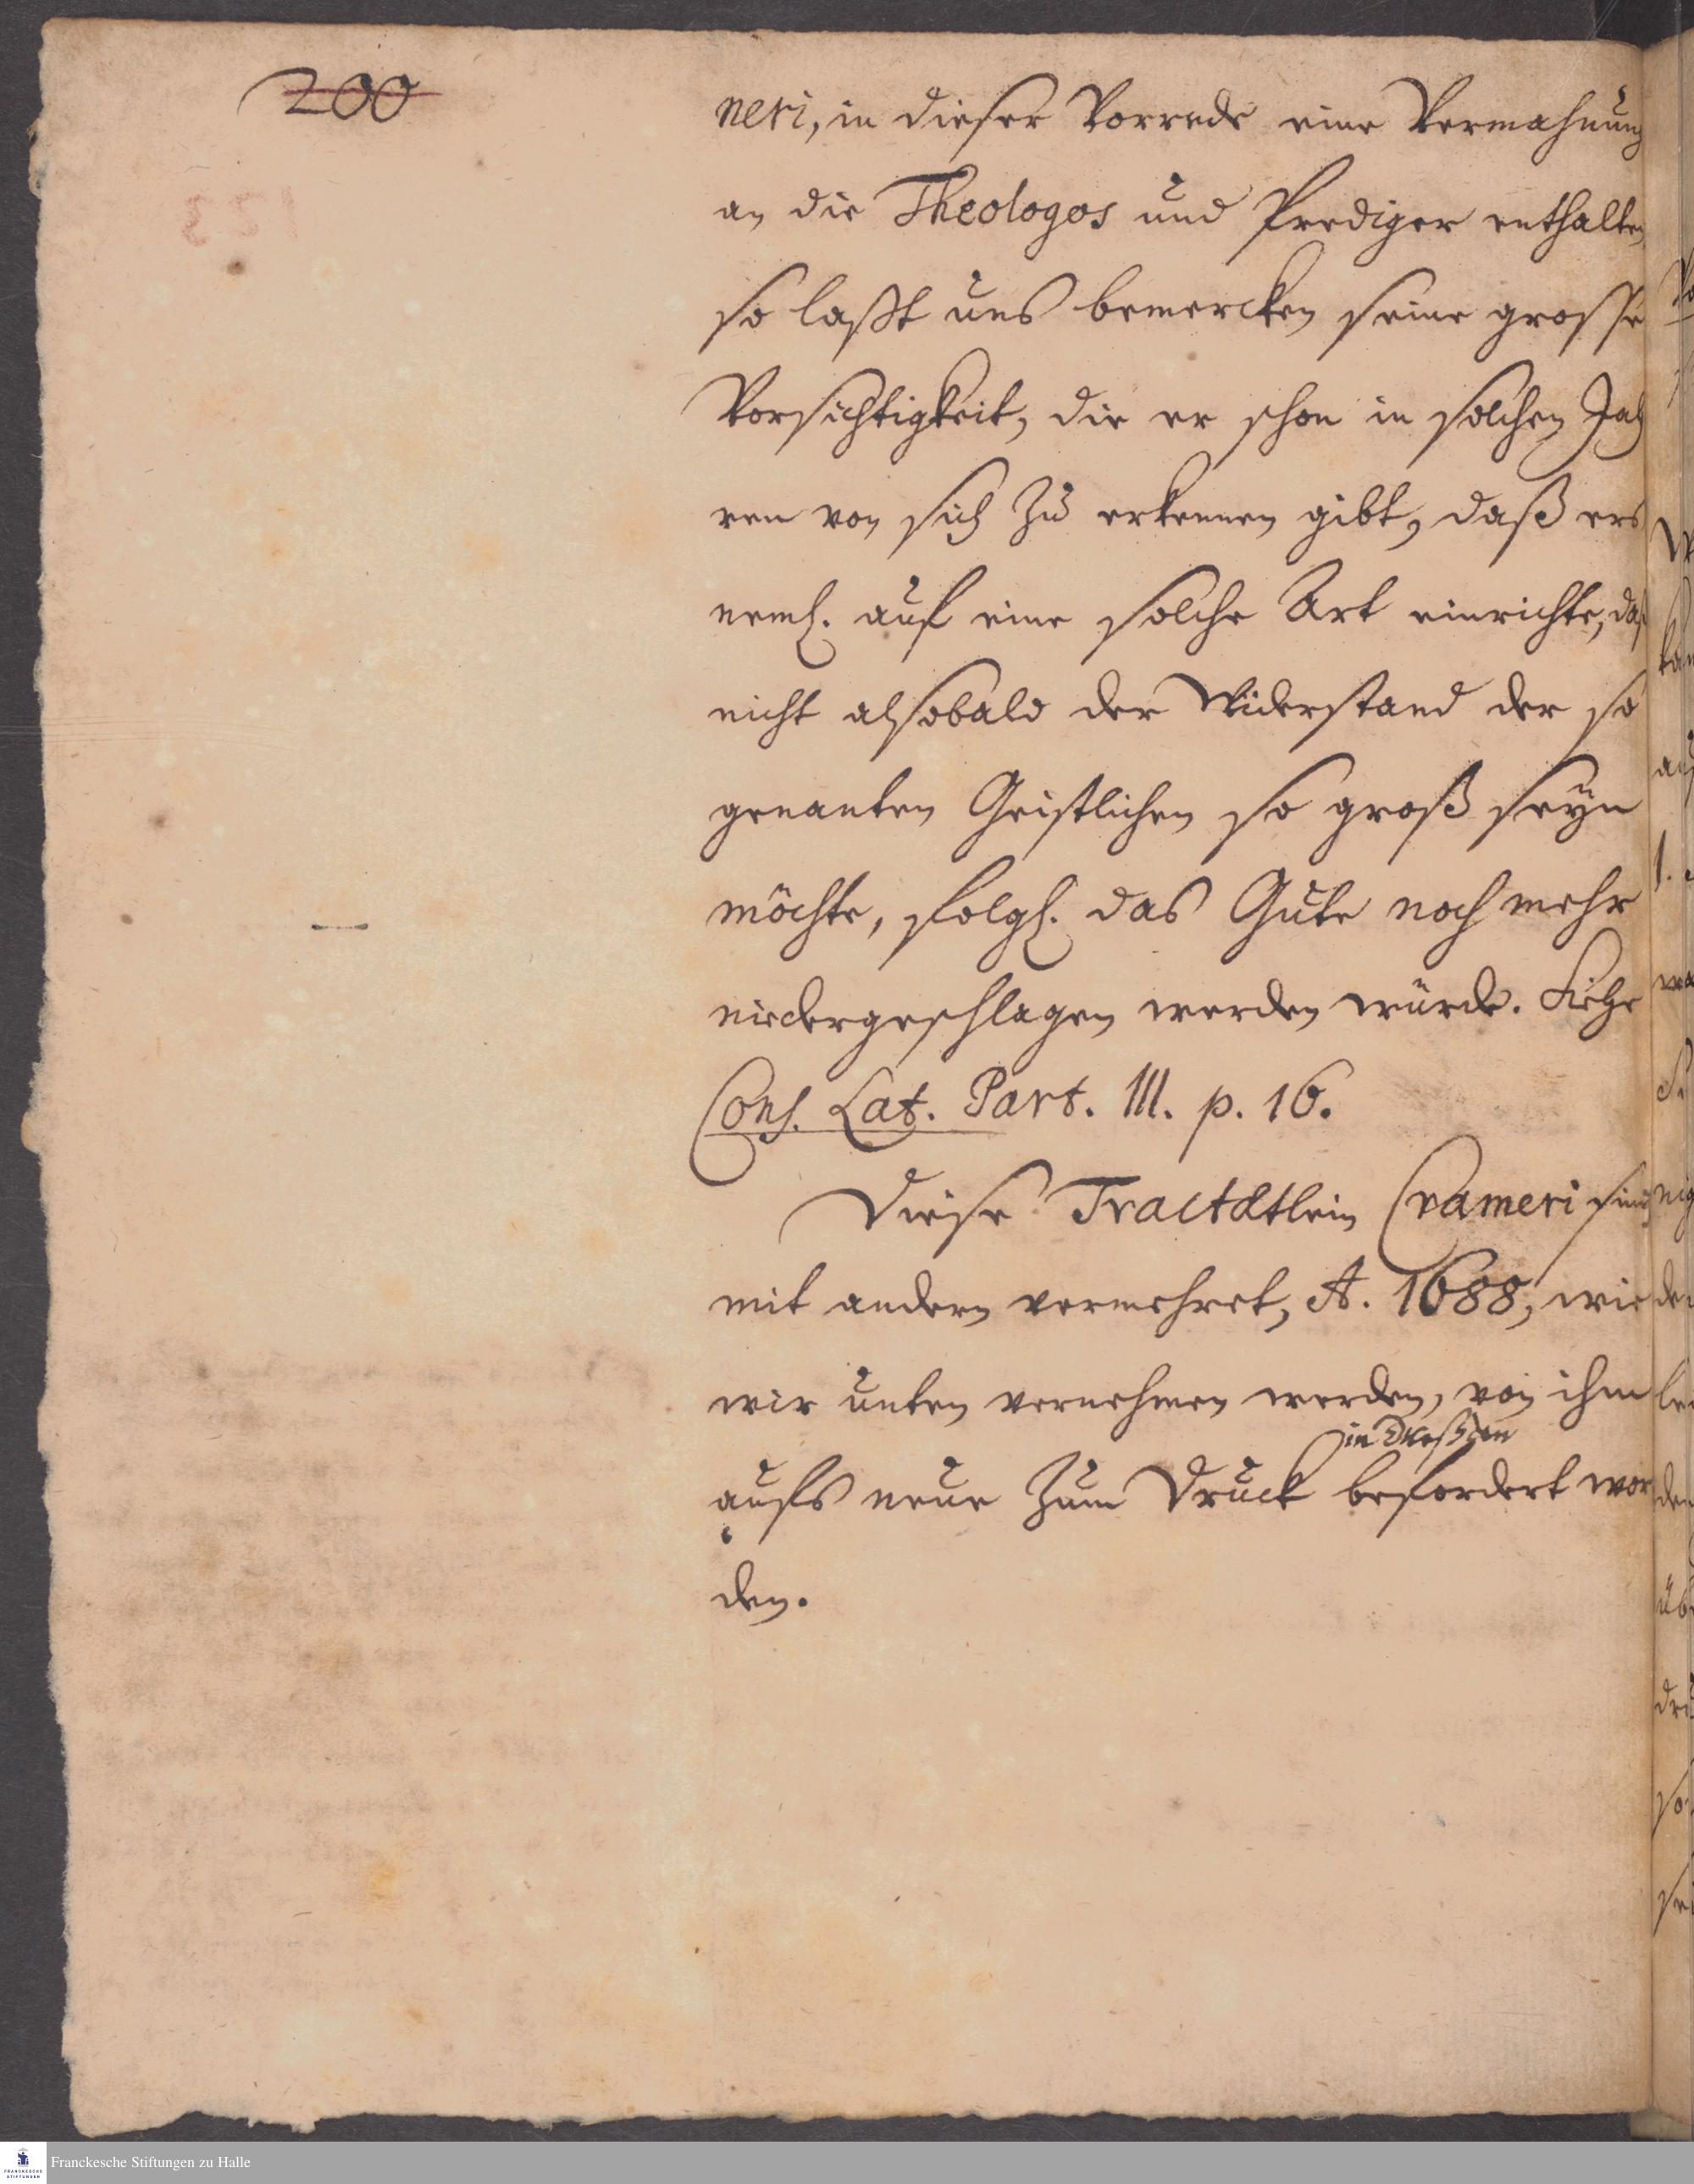 200
neri, in dieser Vorrede eine Vermahnung
an die Theologos und Prediger enthalten
so lasst uns bemercken seine grosse
Vorsichtigkeit, die er schon in solchen Jah
ren von sich zu erkennen gibt, daß ers
neml. auf eine solche Art einrichte, daß
nicht alsobald der Widerstand der so
genanten Geistlichen so groß seyn
möchte, folgl. das Gute noch mehr
niedergeschlagen werden würde. Siehe
Cons. Lat. Part. III. p. 16.
Diese Tractätlein Crameri sind
mit andern vermehret, A. 1688, wie
wir unten vernehmen werden, von ihm
in Dreßden
aufs neue zum Druck befordert wor
den.
Franckesche Stiftungen zu Halle